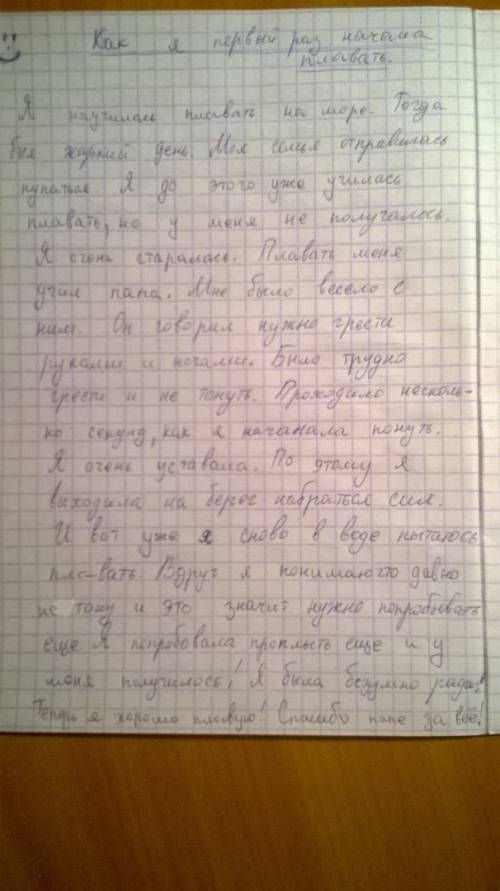 Как я первый раз начала
плавать.
Я научилась плавать на море. Тогда
был жаркий день. Моя семья отправилась
купаться. Я до этого уже училась
плавать, но у меня не получалось.
Я очень старалась. Плавать меня
учил папа. Мне было весело с
ним Он говорил нужно грести
руками и ногами. Было трудно
грести и не тонуть. Проходило несколь-
ко секунд, как я начанала тонуть.
Я очень уставала. По этому я
выходила на берег набраться сил.
И вот уже я сново в воде пытаюсь
пла-вать. Вдруг я понимаю что давно
не тону и это значит нужно попробывать
еще. Я попробовала проплыть еще и у
меня получилось! Я была безумно рада!
Теперь я хорошо плаваю! Спасибо папе за всё!